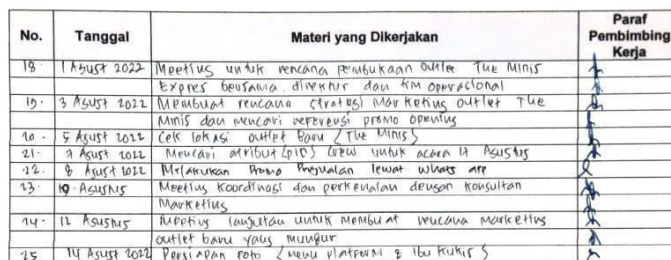 No. Tanggal Materi yang Dikerjakan Paraf Pembimbing Kerja
18. 1 Agust 2022 Meeting untuk rencana pembukaan outlet The Minis
Expres bersama direktur dan tim operasional
19. 3 Agust 2022 Membuat rencana strategi Marketing outlet The
Minis dan mencari referensi promo opening
20. 5 Agust 2022 Cek lokasi outlet Baru (The Minis)
21. 7 Agust 2022 Mencari atribut (pin) crew untuk acara 17 Agustus
22. 8 Agust 2022 Melakukan Promo Penjualan lewat whats app
23. 10 Agustus Meeting koordinasi dan perkenalan dengan konsultan
Marketing
24. 12 Agustus Meeting lanjutan untuk membuat rencana marketing
outlet baru yang
25 14 Agust 2022 Persiapan Foto (menu platform & Ibu Kukis)